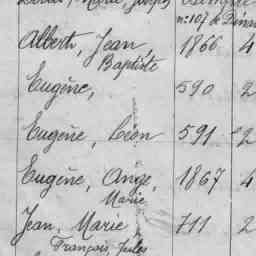 n: 107 de
Albert, Jean, 1866 4
Baptiste
Eugène, 590 2
Eugène, Léon 591 2
Eugène, Ange, 1867 4
Marie
Jean, Marie 711 2
François, Jules